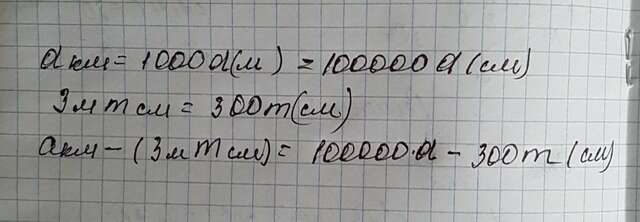 a км = 1000 a (м) = 100000 a (см)
3 м m см = 300 m (см)
a км - (3 м m см) = 100000·a - 300 m (см)